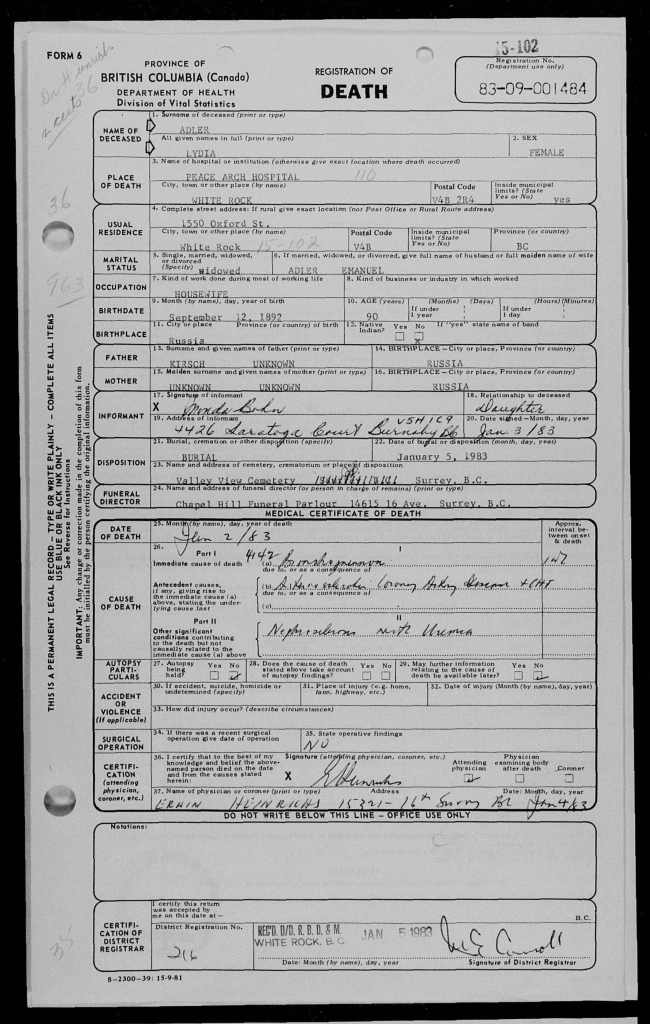 FORM 6
15-102
PROVINCE OF
BRITISH COLUMBIA (Canada)
DEPARTMENT OF HEALTH
Division of Vital Statistics
REGISTRATION OF
DEATH
Registration No.
(Department use only)
83-09-001484
NAME OF DECEASED
1. Surname of deceased (print or type)
ADLER
All given names in full (print or type) 2. SEX
LYDIA FEMALE
PLACE OF DEATH
3. Name of hospital or institution (otherwise give exact location where death occurred)
PEACE ARCH HOSPITAL 110
City, town or other place (by name) Postal Code Inside municipal limits? (State Yes or No)
WHITE ROCK V4B 2R4 yes
USUAL RESIDENCE
4. Complete street address: If rural give exact location (not Post Office or Rural Route address)
1550 Oxford St.
City, town or other place (by name) Postal Code Inside municipal limits? (State Yes or No) Province (or country)
White Rock 15-102 V4B BC
MARITAL STATUS
5. Single, married, widowed, or divorced (Specify) 6. If married, widowed, or divorced, give full name of husband or full maiden name of wife
widowed ADLER EMANUEL
OCCUPATION
7. Kind of work done during most of working life 8. Kind of business or industry in which worked
HOUSEWIFE
BIRTHDATE
9. Month (by name), day, year of birth 10. AGE (years) (Months) (Days) (Hours) (Minutes)
September 12, 1892 90 If under 1 year If under 1 day
BIRTHPLACE
11. City or place Province (or country) of birth 12. Native Indian? Yes No If "yes" state name of band
Russia x
FATHER
13. Surname and given names of father (print or type) 14. BIRTHPLACE—City or place, Province (or country)
KIRSCH UNKNOWN RUSSIA
MOTHER
15. Maiden surname and given names of mother (print or type) 16. BIRTHPLACE—City or place, Province (or country)
UNKNOWN UNKNOWN RUSSIA
INFORMANT
17. Signature of informant 18. Relationship to deceased
X Bohn Daughter
19. Address of informant V5H 1C9 20. Date signed—Month, day, year
4426 Saratoga Court Burnaby BC Jan 3/83
DISPOSITION
21. Burial, cremation or other disposition (specify) 22. Date of burial or disposition (month, day, year)
BURIAL January 5, 1983
23. Name and address of cemetery, crematorium or place of disposition
Valley View Cemetery Surrey, B.C.
FUNERAL DIRECTOR
24. Name and address of funeral director (or person in charge of remains) (print or type)
Chapel Hill Funeral Parlour 14615 16 Ave. Surrey, B.C.
MEDICAL CERTIFICATE OF DEATH
DATE OF DEATH
25. Month (by name), day, year of death
Jan 2/83
Approx. interval between onset & death
CAUSE OF DEATH
26. Part I I
Immediate cause of death 4142 (a) Bronchopneumonia
due to, or as a consequence of
Antecedent causes, if any, giving rise to the immediate cause (a) above, stating the underlying cause last
(b) Coronary Artery Disease + CHF
due to, or as a consequence of
(c)
Part II II
Other significant conditions contributing to the death but not causally related to the immediate cause (a) above
Nephrosclerosis with Uremia
AUTOPSY PARTICULARS
27. Autopsy being held? Yes No 28. Does the cause of death stated above take account of autopsy findings? Yes No 29. May further information relating to the cause of death be available later? Yes No
ACCIDENT OR VIOLENCE (If applicable)
30. If accident, suicide, homicide or undetermined (specify) 31. Place of injury (e.g. home, farm, highway, etc.) 32. Date of injury (Month (by name), day, year)
33. How did injury occur? (describe circumstances)
SURGICAL OPERATION
34. If there was a recent surgical operation give date of operation 35. State operative findings
NO
CERTIFICATION (attending physician, coroner, etc.)
36. I certify that to the best of my knowledge and belief the above-named person died on the date and from the causes stated herein:
Signature (attending physician, coroner, etc.) Attending physician Physician examining body after death Coroner
X E Heinrichs
37. Name of physician or coroner (print or type) Address Date: Month, day, year
ERWIN HEINRICHS 15321-16th Surrey BC Jan 4/83
DO NOT WRITE BELOW THIS LINE – OFFICE USE ONLY
Notations:
CERTIFICATION OF DISTRICT REGISTRAR
I certify this return was accepted by me on this date at— B.C.
District Registration No.
216
REC'D. D/D. R. B. D. & M.
WHITE ROCK, B.C. JAN 5 1983
Date: Month (by name), day, year Signature of District Registrar
8-2300-39: 15-9-81
THIS IS A PERMANENT LEGAL RECORD – TYPE OR WRITE PLAINLY – COMPLETE ALL ITEMS
USE BLUE OR BLACK INK ONLY
See Reverse for Instructions
IMPORTANT: Any change or correction made in the completion of this form
must be initialled by the person certifying the original information.
Dr Heinrichs
36
963